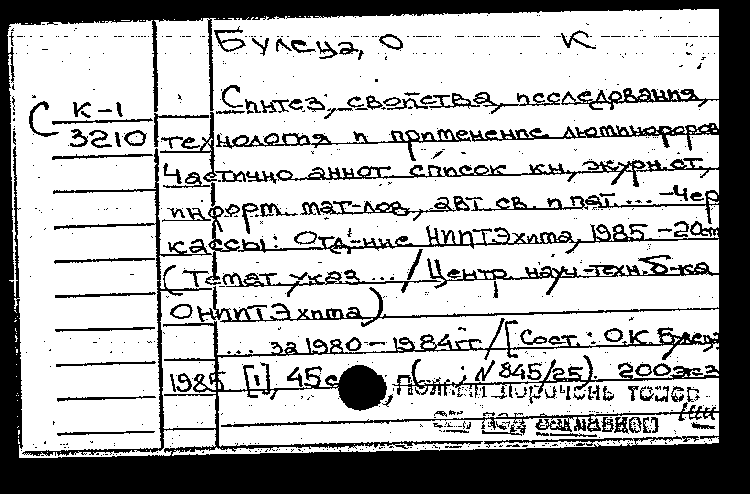 Булеца, О К
С К-1
3210
Синтез, свойства, исследования,
технология и применение люминофоров
Частично аннот. список кн, журн. ст,
информ. мат-лов, авт. св. и пат... -Чер
кассы: Отд-ние НИИТЭхима, 1985 -20см
(Темат. указ ... / Центр. науч-техн. б-ка
ОНИИТЭхима)
... за 1980 - 1984гг / [Сост.: О.К. Булеца
1985 [1], 45с , ( ; N 845/25). 200экз
Полный перечень томов
см. под заглавием